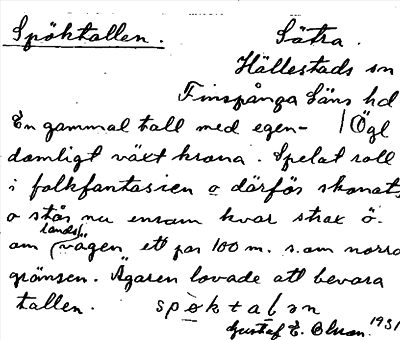 Spöktallen. Sätra.
Hällestads sn
Finspånga läns hd
En gammal tall med egen- | Ögl
domligt växt krona. Spelat roll
i folkfantasien o därför skonats
o står nu ensam kvar strax ö.
om landsvägen ett par 100 m. s.om norra
gränsen. Ägaren lovade att bevara
tallen. spøktalən
Gustaf E. Olsson. 1931